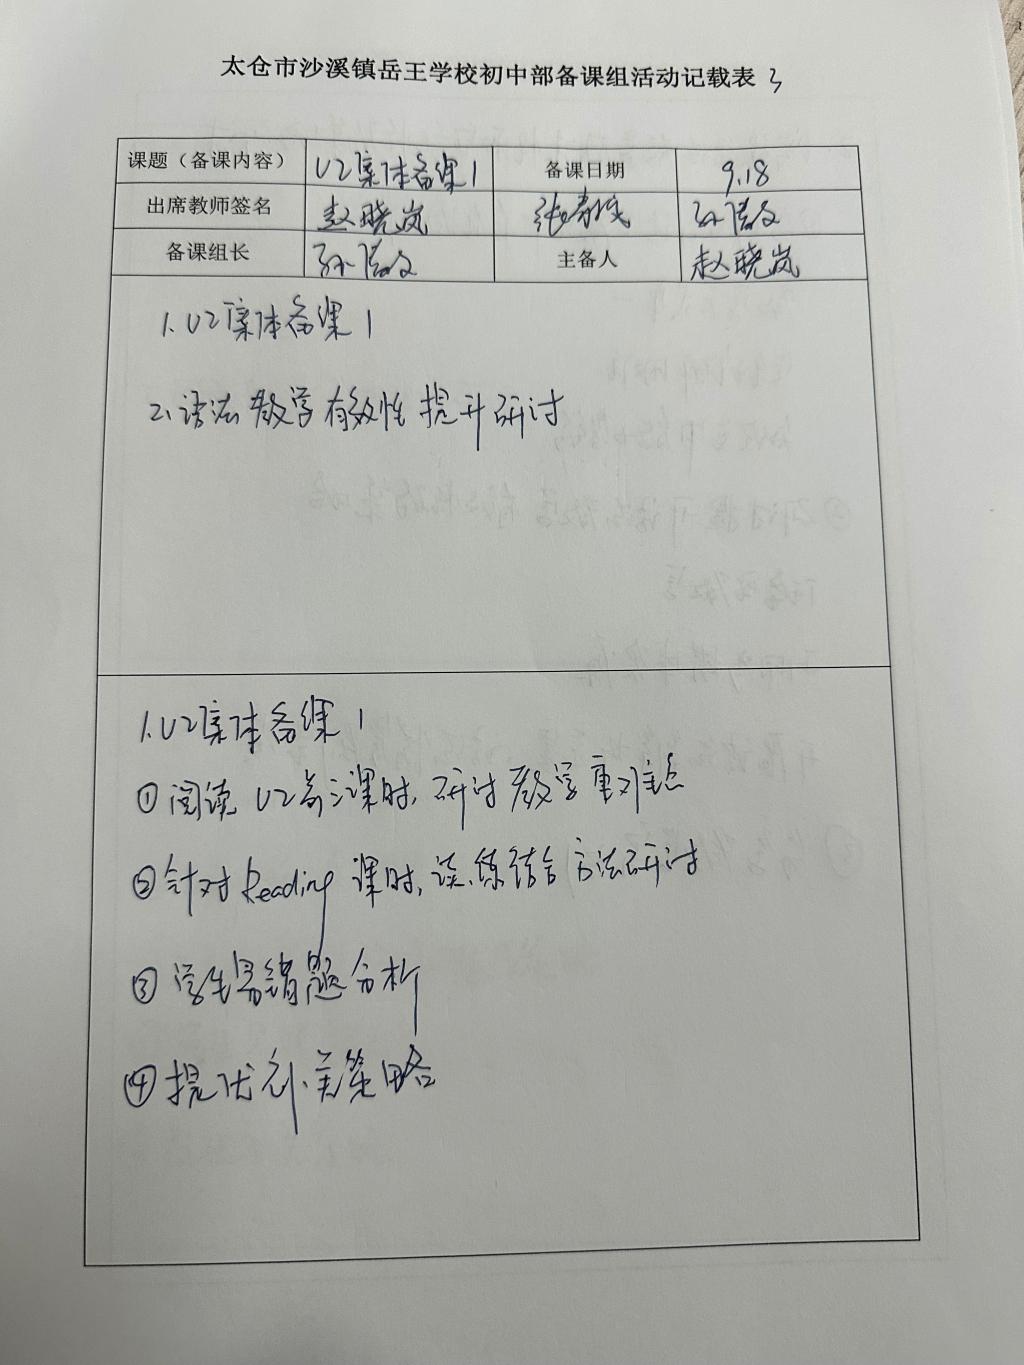 太仓市沙溪镇岳王学校初中部备课组活动记载表 3
课题（备课内容） U2集体备课1 备课日期 9.18
出席教师签名 赵晓岚
备课组长 主备人 赵晓岚
1.U2集体备课1
2.语法教学有效性提升研讨
1.U2集体备课1
①阅读U2前三课时,研讨教学重难点
②针对Reading课时,读、练结合方法研讨
③学生易错题分析
④提优补差策略